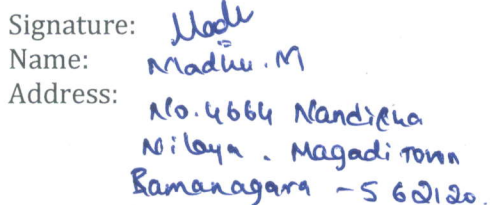 Signature: Madh
Name: Madhu.M
Address:
No.4664 Nandicha
Nilaya. Magadi Town
Ramanagara - 562120.